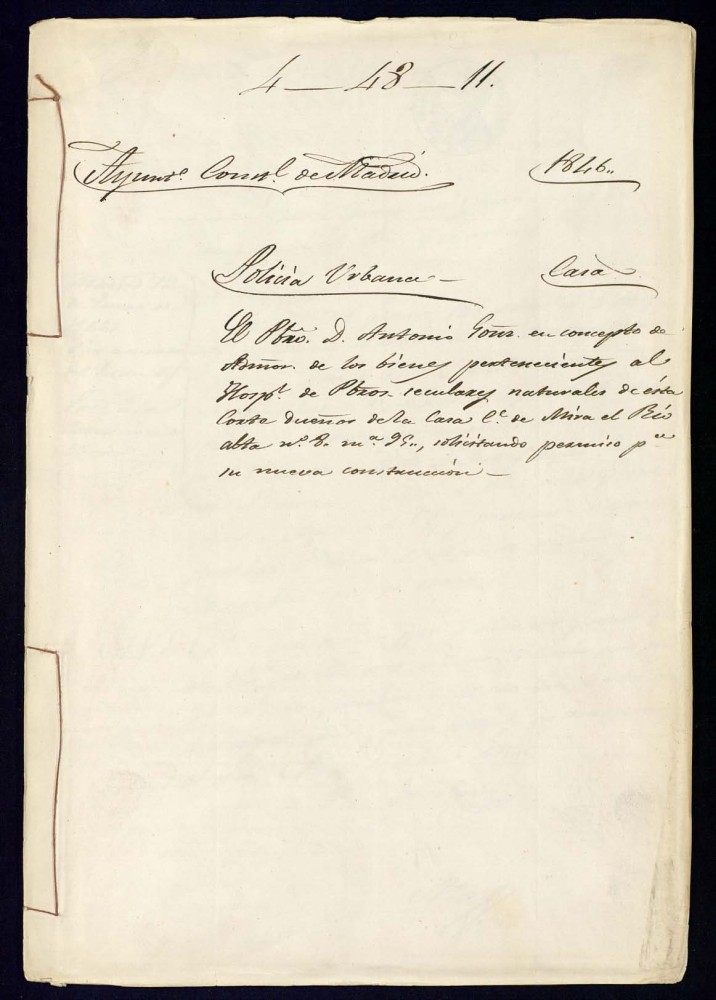 4 — 48 — 11.
Ayunto. Consl. de Madrid. 1846..
Policía Urbana — Casa
El Pbro. D. Antonio Gonz. en concepto de
Admor. de los bienes pertenecientes al
Hospl. de Pbros. seculares naturales de ésta
Corte dueños de la Casa Ce. de Mira el Rio
alta nº. 8. mª. 95.., solicitando permiso pa
su nueva construccion —